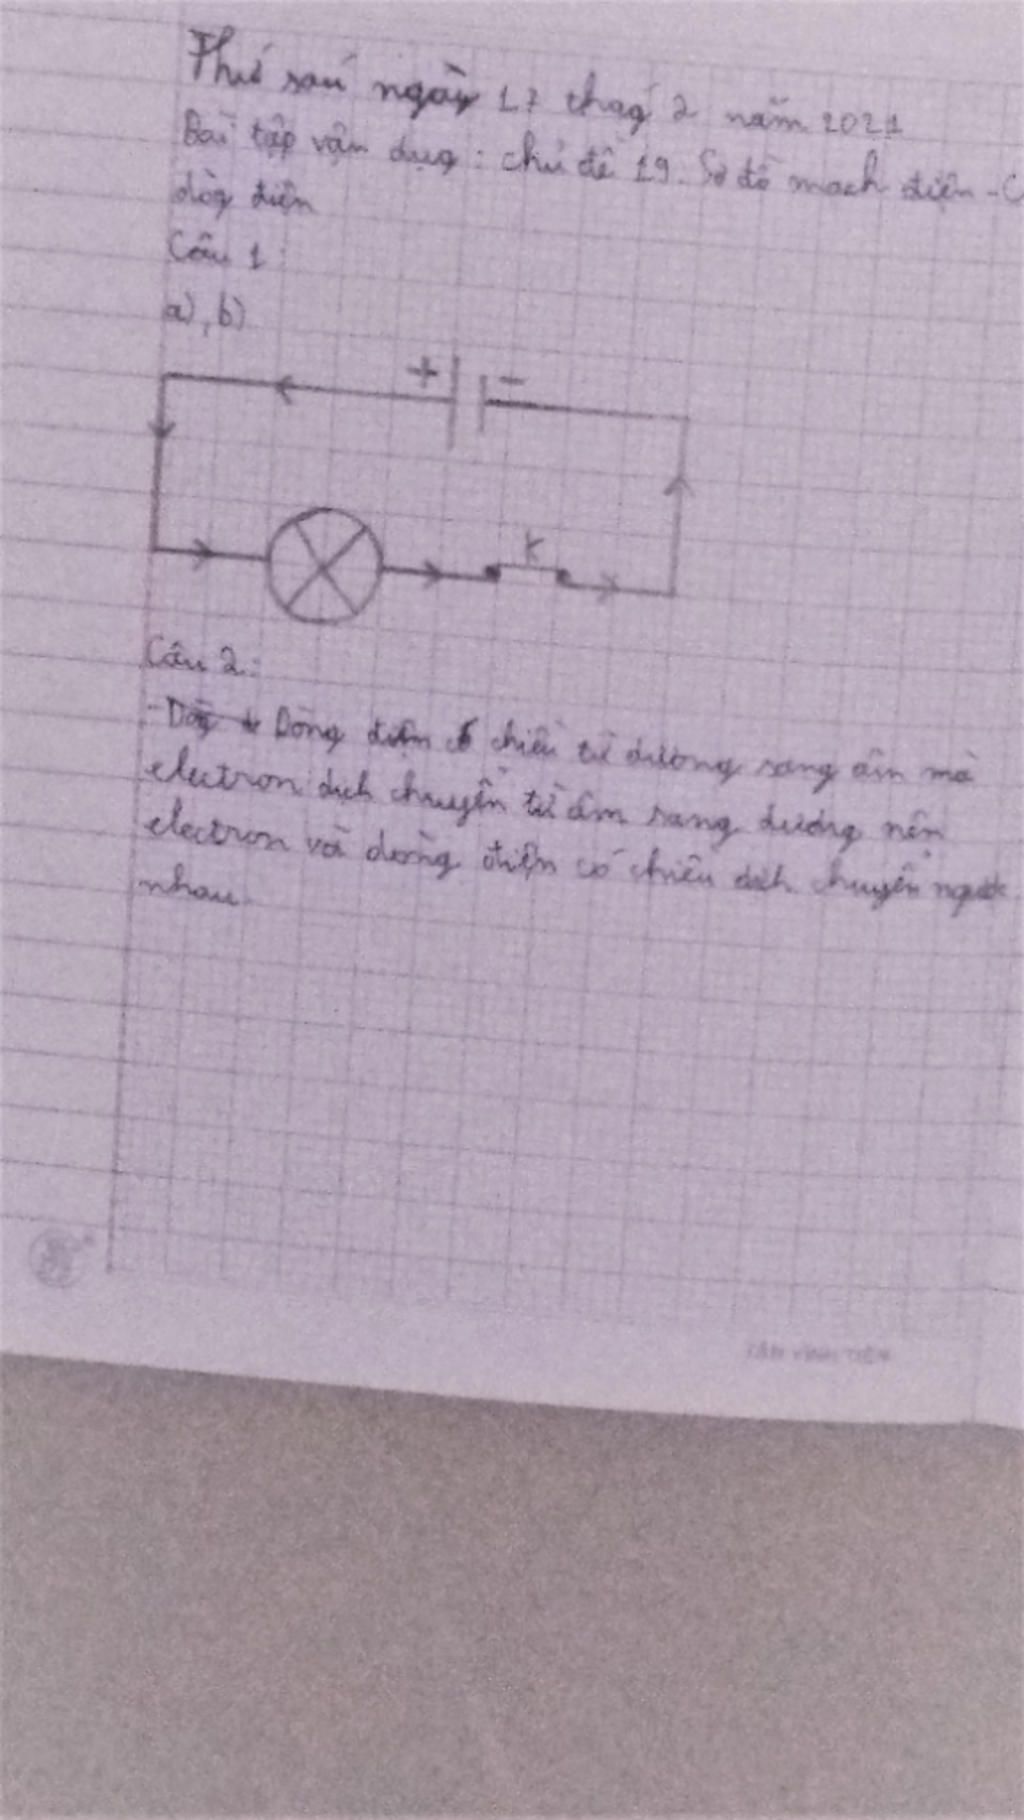 Thứ sáu ngày 17 thág 2 năm 2021
Bài tập vận dụg : chủ đề 19. Sơ đồ mạch điện - C
dòg điện
Câu 1 :
a), b)
+ -
K
Câu 2 :
- Dòng điện có chiều từ dương sang âm mà
electron dịch chuyển từ âm sang dương nên
electron và dòng điện có chiều dịch chuyển ngược
nhau.